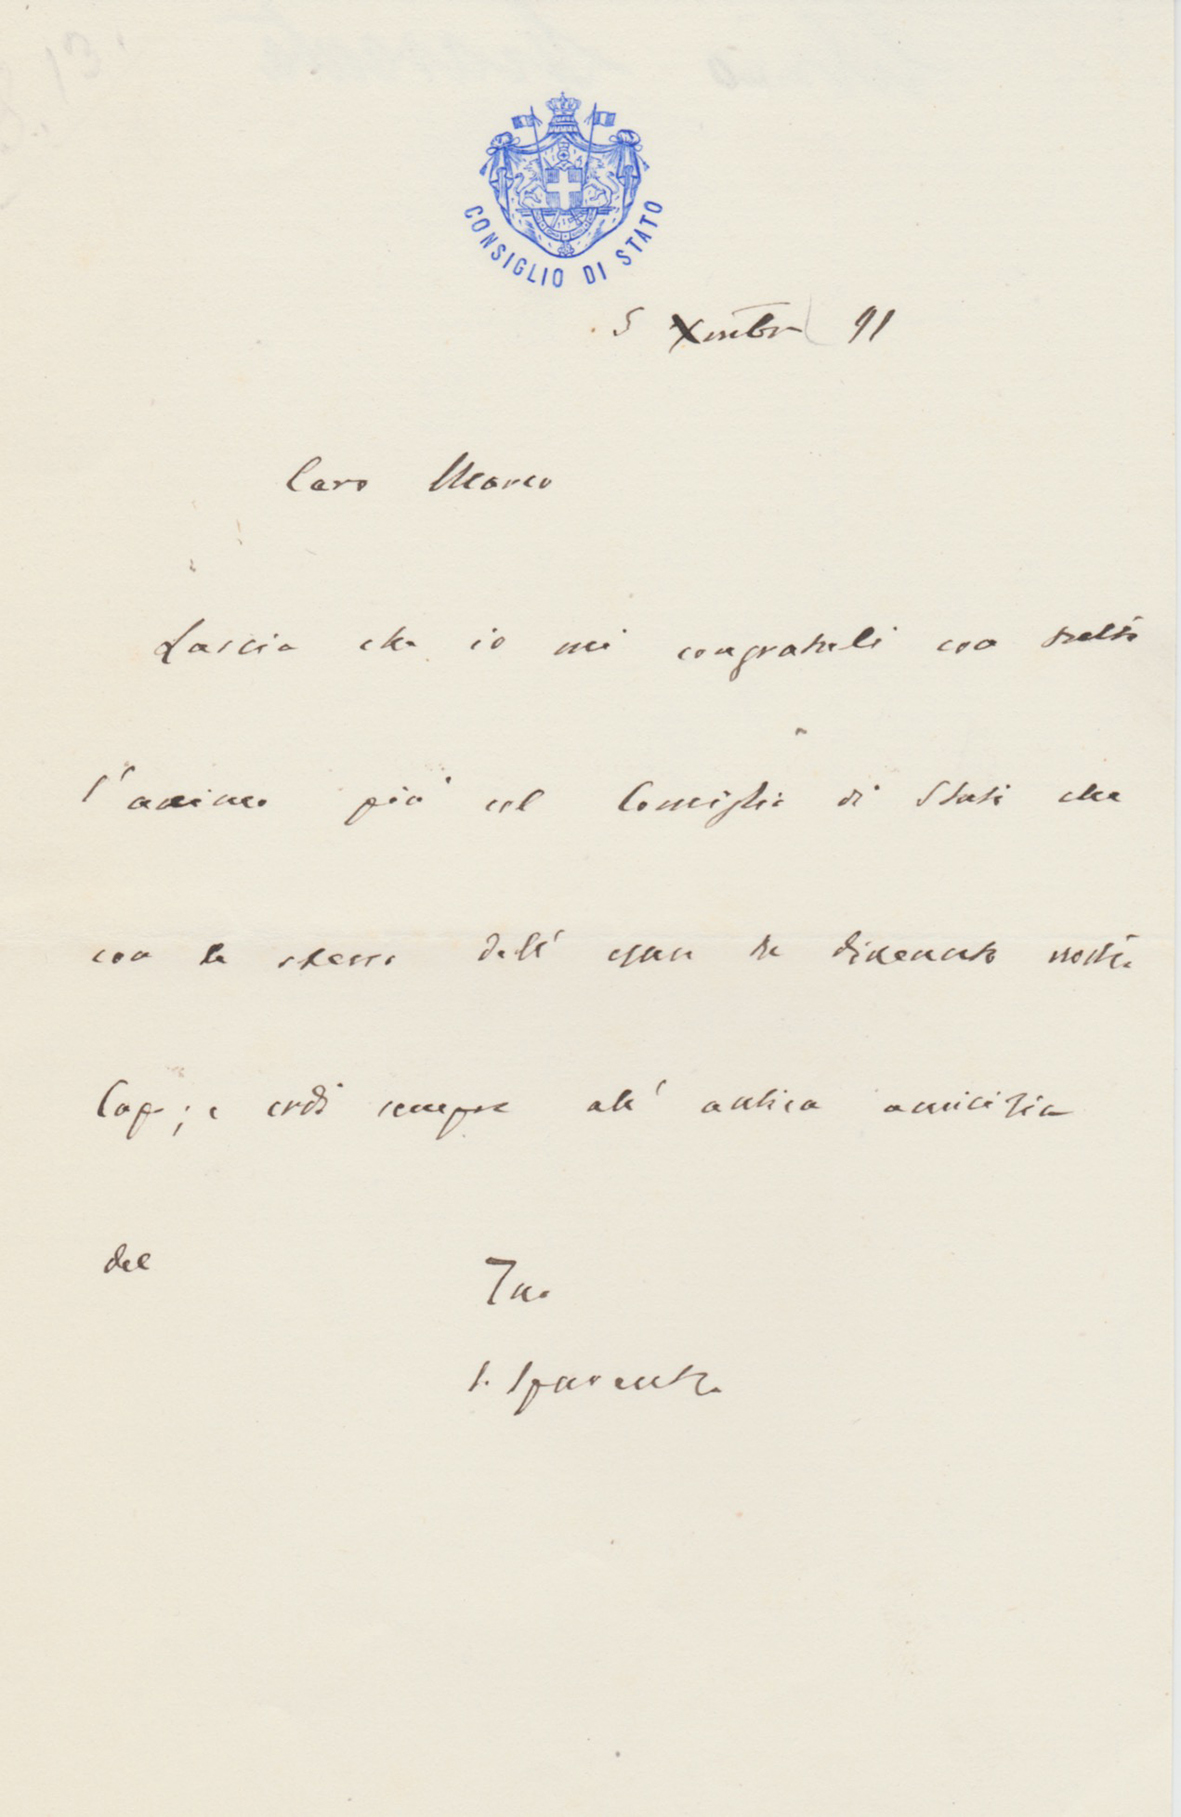 CONSIGLIO DI STATO
5 Xmbre 91
Caro Marco
Lascia che io mi congratuli con tutto
l'animo più col Consiglio di Stato che
con te stesso dell' esser tu divenuto nostro
Capo; e credi sempre all' antica amicizia
del
Tuo
S. Spaventa